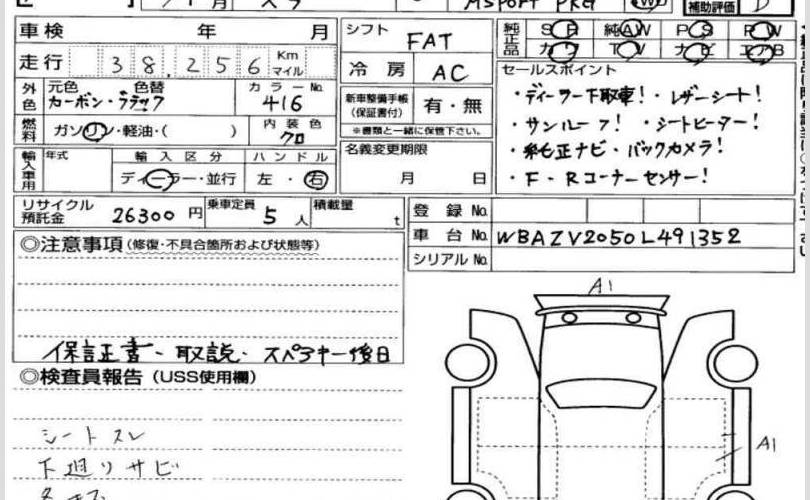 月 スラ MSPORT PKG
補助評価 D
車検 年 月
シフト FAT
純正品 SR 純AW PS PW
カワ TV ナビ エアB
走行 38,256 Km マイル
冷房 AC
セールスポイント
外色 元色 カーボン・ブラック 色替 カラーNo. 416
新車整備手帳(保証書付) 有・無
※書類と一緒に保管下さい。
・ディーラー下取車!・レザーシート!
・サンルーフ!・シートヒーター!
・純正ナビ・バックカメラ!
・F・Rコーナーセンサー!
燃料 ガソリン・軽油・( ) 内装色 クロ
名義変更期限
月 日
輸入車用 年式 輸入区分 ハンドル
ディーラー・並行 左・右
リサイクル預託金 26300円 乗車定員 5人 積載量 t
登録No.
車台No. WBAZV2050L491352
シリアルNo.
◎注意事項(修復・不具合箇所および状態等)
保証書・取説・スペアキー後日
◎検査員報告(USS使用欄)
シートスレ
下廻りサビ
A1
A1